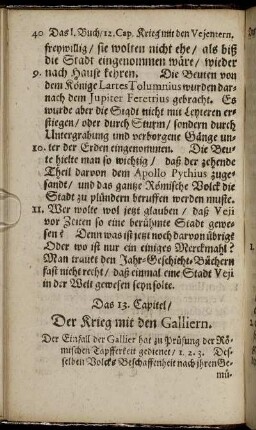 40 Das I. Buch/ 12. Cap. Krieg mit den Vejentern.
freywillig/ sie wolten nicht ehe/ als biß
die Stadt eingenommen wäre/ wieder
9. nach Hause kehren. Die Beuten von
dem Könige Lartes Tolumnius wurden dar-
nach dem Jupiter Feretrius gebracht. Es
wurde aber die Stadt nicht mit Leyteren er-
stiegen/ oder durch Sturm/ sondern durch
Untergrabung und verborgene Gänge un-
10. ter der Erden eingenommen. Die Beu-
te hielte man so wichtig/ daß der zehende
Theil darvon dem Apollo Pythius zuge-
sandt/ und das gantze Römische Volck die
Stadt zu plündern beruffen werden muste.
11. Wer wolte wol jetzt glauben/ daß Veji
vor Zeiten so eine berühmte Stadt gewe-
sen? Denn was ist jetzt noch darvon übrig?
Oder wo ist nur ein einiges Merckmahl?
Man trauet den Jahr-Geschicht-Büchern
fast nicht recht/ daß einmal eine Stadt Veji
in der Welt gewesen seyn solte.
Das 13. Capitel/
Der Krieg mit den Galliern.
Der Einfall der Gallier hat zu Prüfung der Rö-
mischen Tapfferkeit gedienet/ 1. 2. 3. Des-
selben Volcks Beschaffenheit nach ihren Ge-
mü-